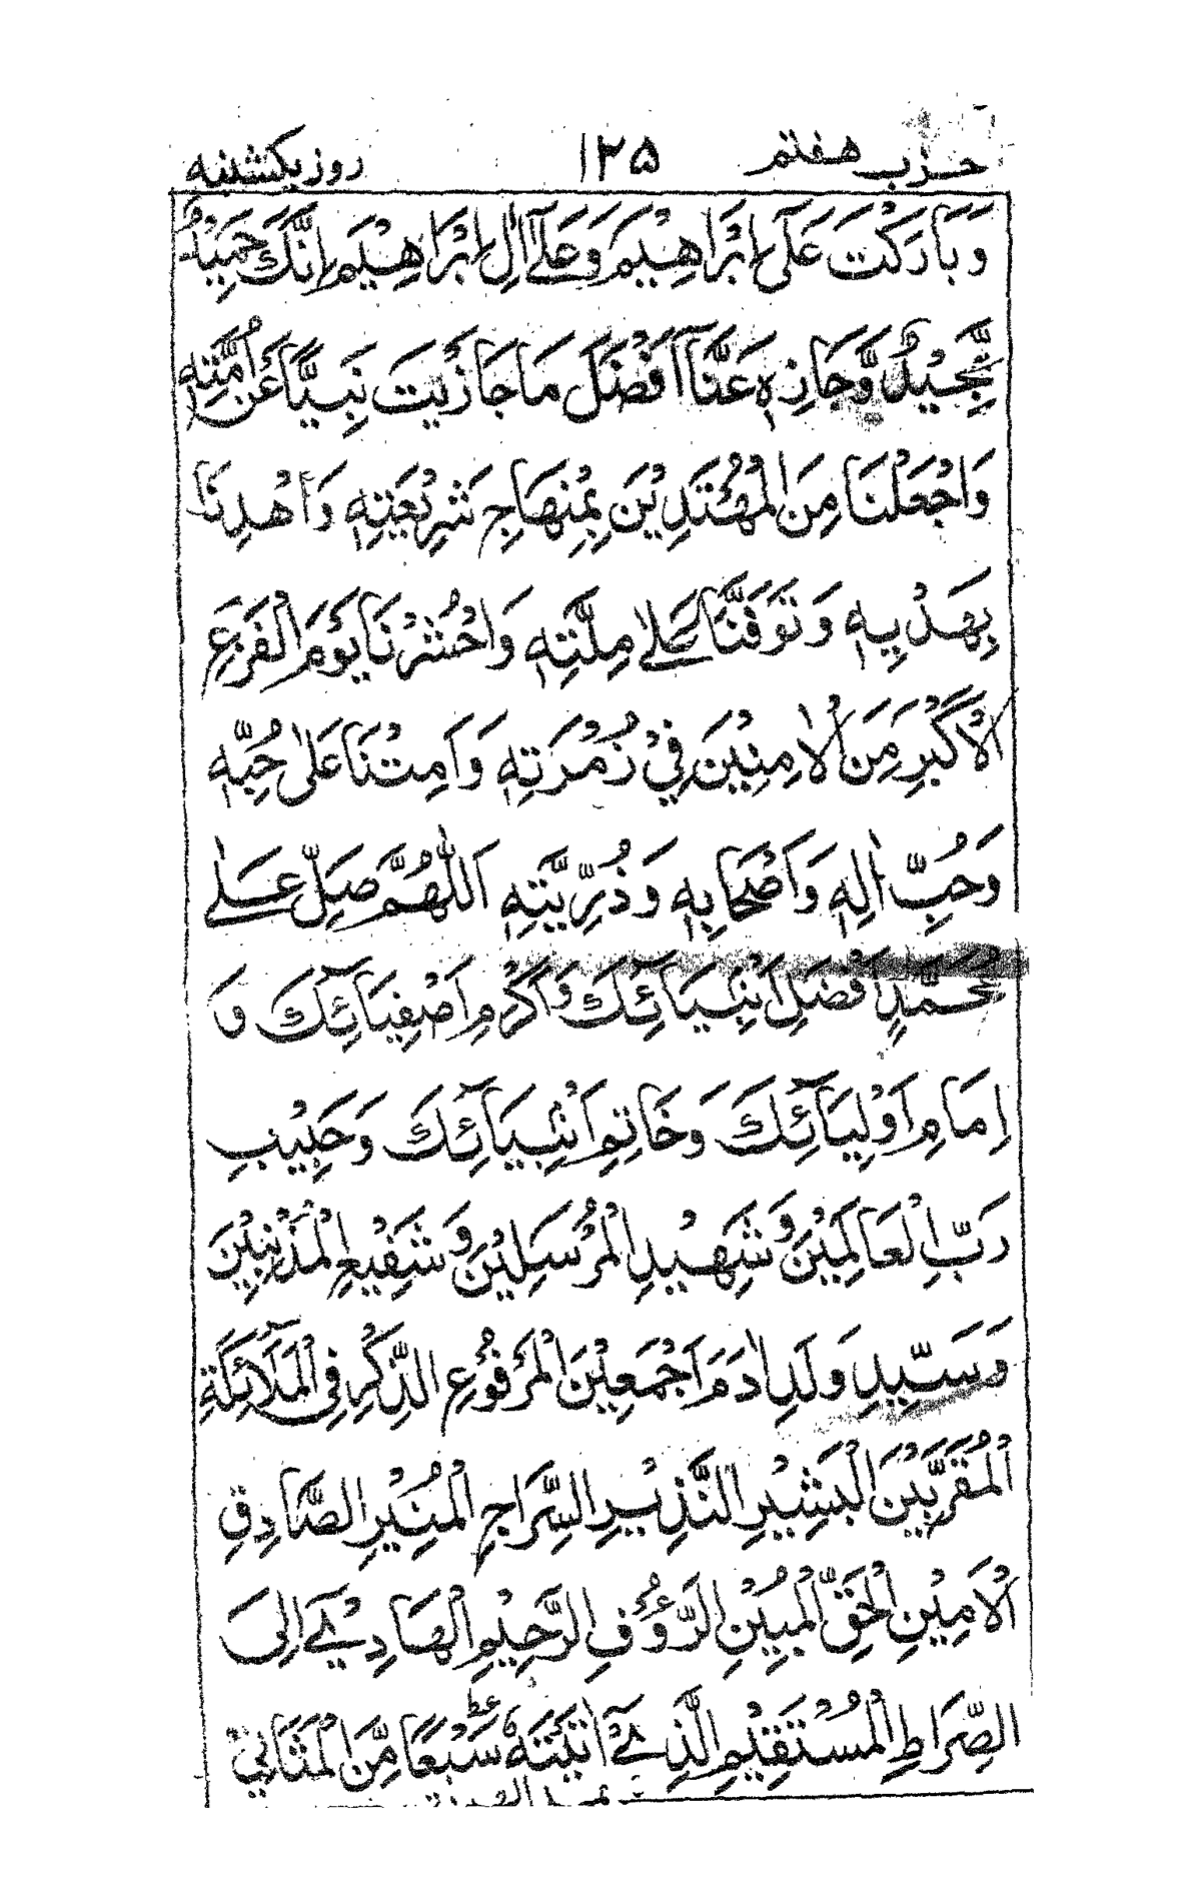 حزب هفتم ۱۲۵ روز یکشنبه
وَبَارَكْتَ عَلٰى اِبْرَاهِيْمَ وَعَلٰٓى اٰلِ اِبْرَاهِيْمَ اِنَّكَ حَمِيْدٌ
مَّجِيْدٌ وَّجَازِهٖ عَنَّآ اَفْضَلَ مَا جَازَيْتَ نَبِيًّا عَنْ اُمَّتِهٖ
وَاجْعَلْنَا مِنَ الْمُهْتَدِيْنَ بِمِنْهَاجِ شَرِيْعَتِهٖ وَاهْدِنَا
بِهَدْيِهٖ وَتَوَفَّنَا عَلٰى مِلَّتِهٖ وَاحْشُرْنَا يَوْمَ الْفَزَعِ
الْاَكْبَرِ مِنَ الْاٰمِنِيْنَ فِيْ زُمْرَتِهٖ وَاَمِتْنَا عَلٰى حُبِّهٖ
وَحُبِّ اٰلِهٖ وَاَصْحَابِهٖ وَذُرِّيَّتِهٖ اَللّٰهُمَّ صَلِّ عَلٰى
مُحَمَّدٍ اَفْضَلِ اَنْبِيَآئِكَ وَاَكْرَمِ اَصْفِيَآئِكَ وَ
اِمَامِ اَوْلِيَآئِكَ وَخَاتِمِ اَنْبِيَآئِكَ وَحَبِيْبِ
رَبِّ الْعَالَمِيْنَ وَشَهِيْدِ الْمُرْسَلِيْنَ وَشَفِيْعِ الْمُذْنِبِيْنَ
وَسَيِّدِ وَلَدِ اٰدَمَ اَجْمَعِيْنَ الْمَرْفُوْعِ الذِّكْرِ فِي الْمَلَآئِكَةِ
الْمُقَرَّبِيْنَ الْبَشِيْرِ النَّذِيْرِ السِّرَاجِ الْمُنِيْرِ الصَّادِقِ
الْاَمِيْنِ الْحَقِّ الْمُبِيْنِ الرَّءُوْفِ الرَّحِيْمِ الْهَادِيْٓ اِلَى
الصِّرَاطِ الْمُسْتَقِيْمِ الَّذِيْٓ اٰتَيْتَهٗ سَبْعًا مِّنَ الْمَثَانِيْ